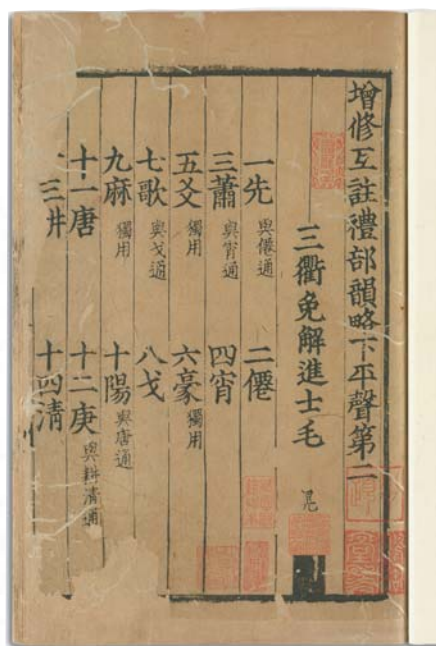 增修互註禮部韻略下平聲第二
三衢免解進士毛 晃
一先 與僊通 二僊
三蕭 與宵通 四宵
五爻 獨用 六豪 獨用
七歌 與戈通 八戈
九麻 獨用 十陽 與唐通
十一唐 十二庚 與耕清通
三 十四清